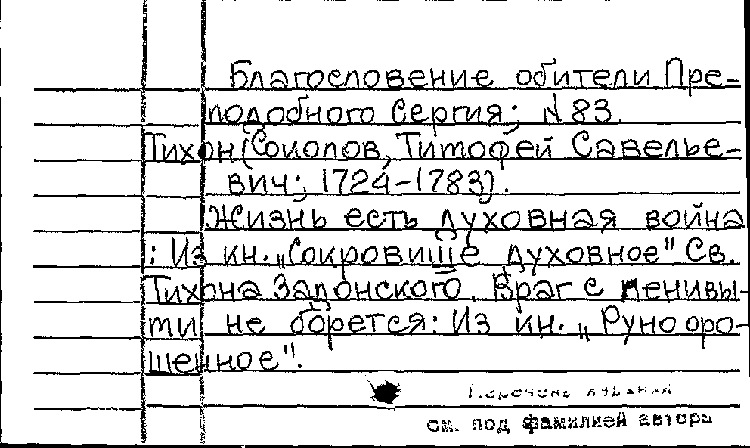 Благословение обители Пре-
подобного Сергия; N 83.
Тихон (Соколов, Тимофей Савелье-
вич; 1724-1783).
Жизнь есть духовная война
: Из кн. „Сокровище духовное" Св.
Тихона Задонского. Враг с ленивы-
ми не борется: Из кн. „Руно оро-
шенное".
Перечень изданий
см. под фамилией автора